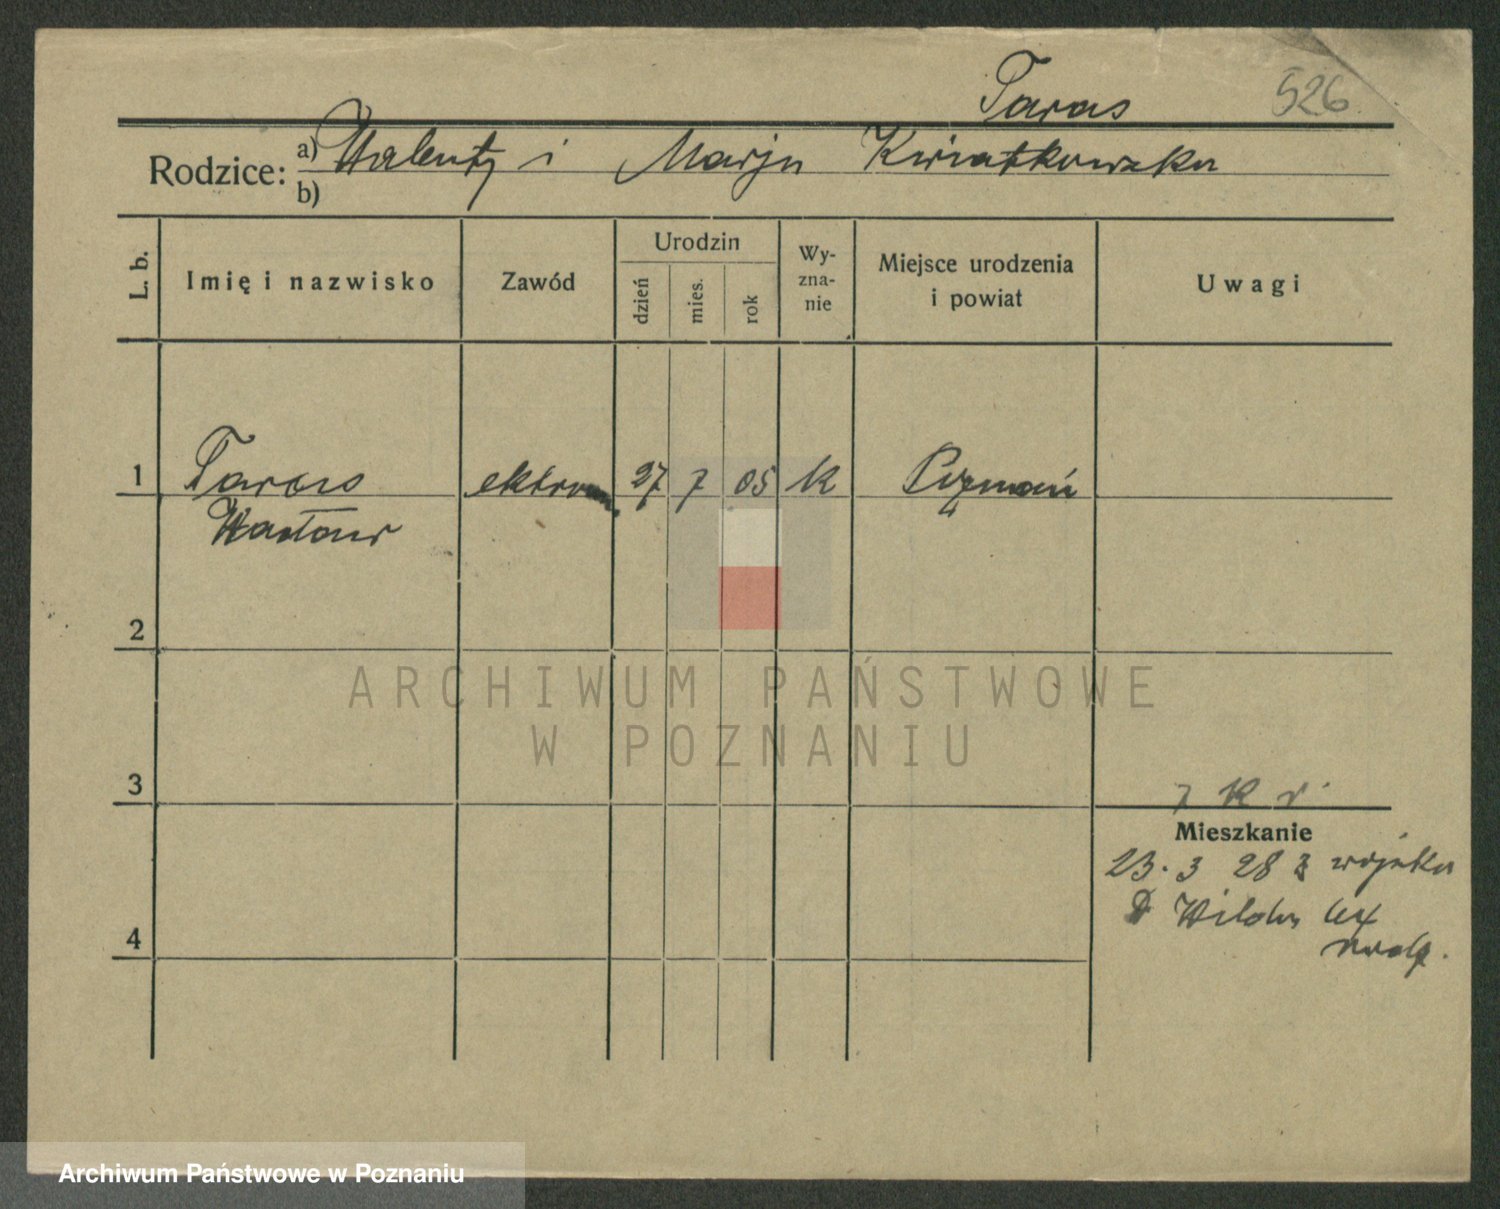 Taras 526
Rodzice: a) Walenty i Marja Kwiatkowska
b)
L. b. Imię i nazwisko Zawód Urodzin dzień mies. rok Wy-zna-nie Miejsce urodzenia i powiat Uwagi
1 Taras 27 7 05 k Poznań
Wacław
2
ARCHIWUM PAŃSTWOWE
W POZNANIU
3
7 K r
Mieszkanie
23. 3 28 z wojska
4
Archiwum Państwowe w Poznaniu